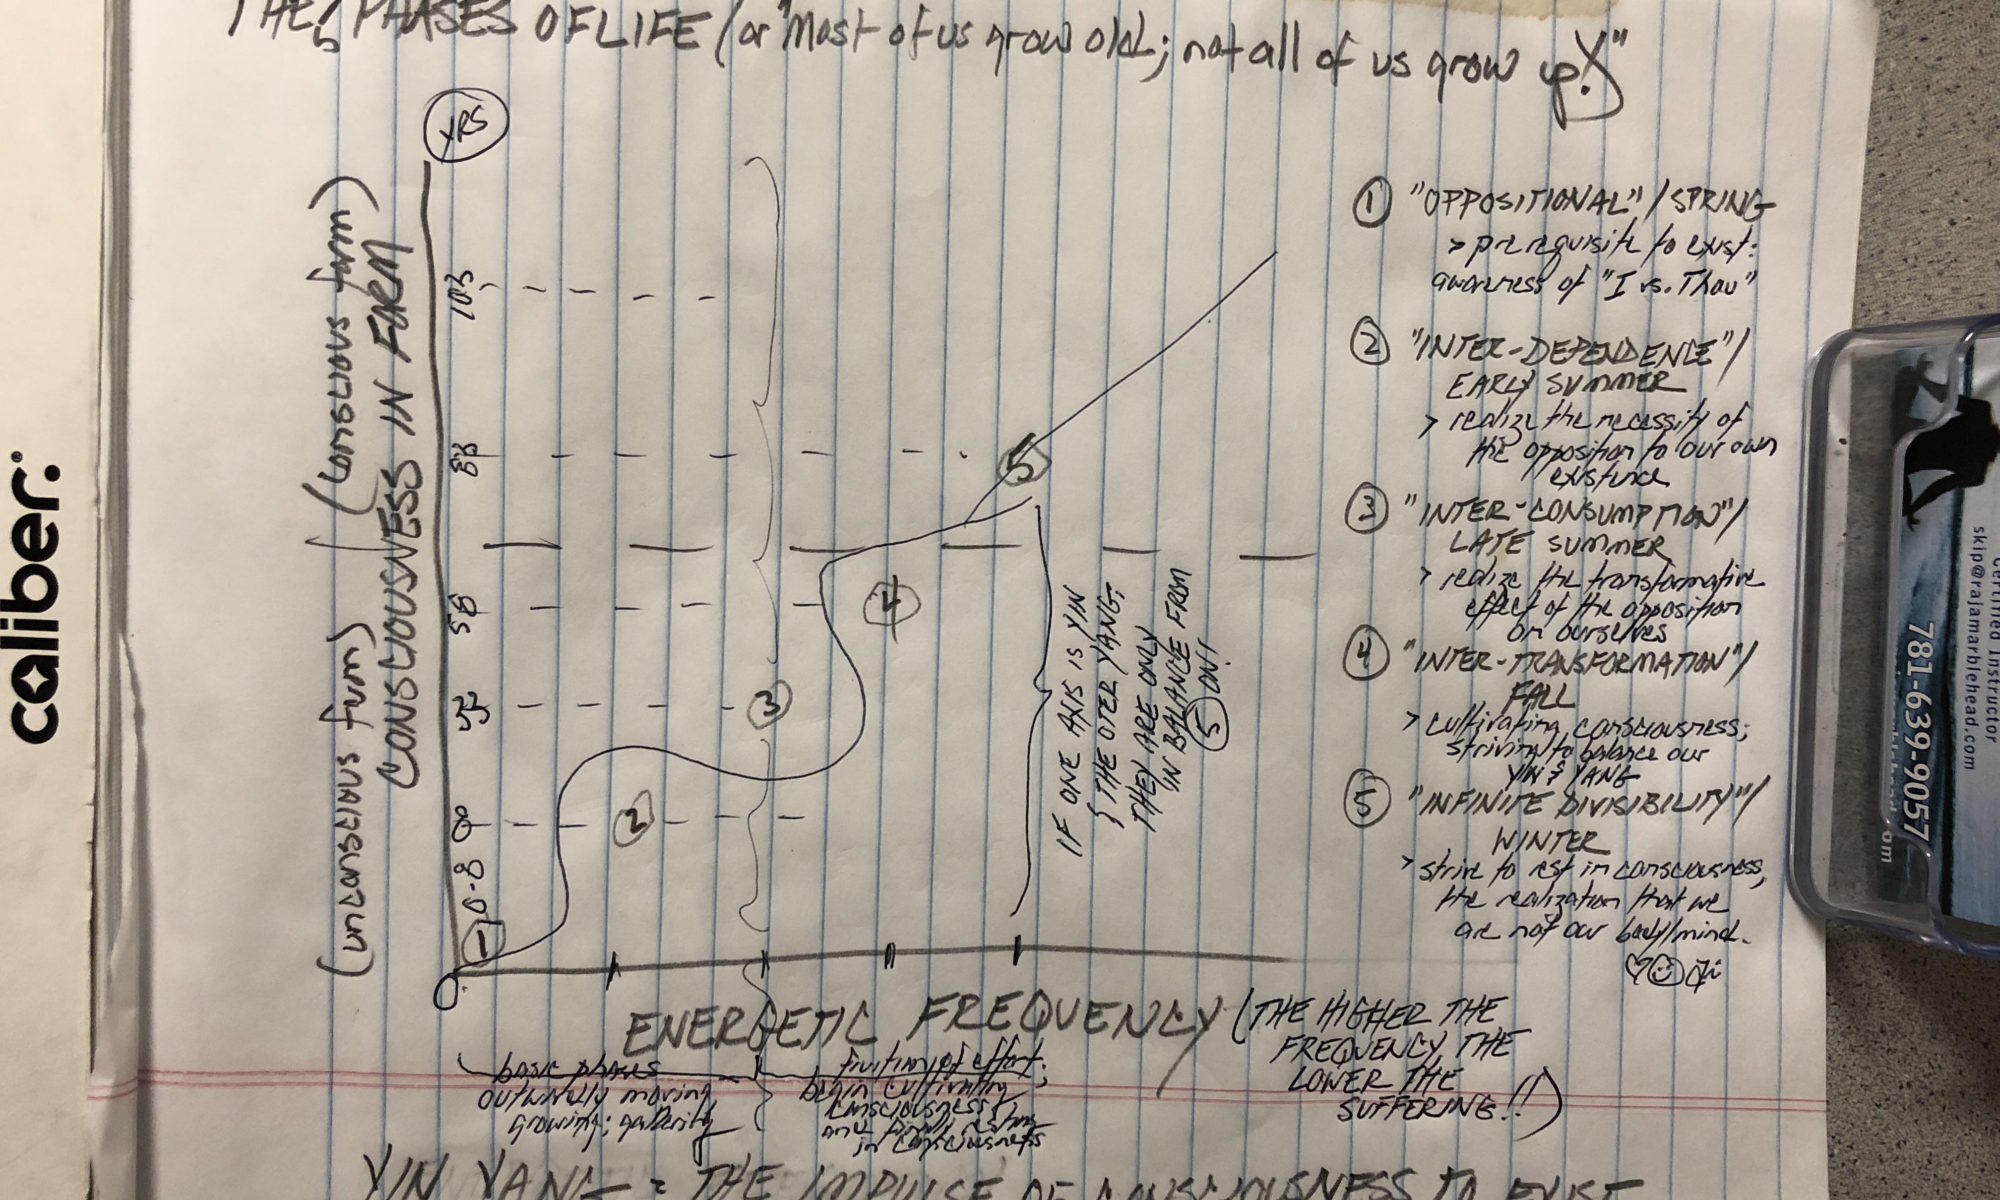 THE 5 PHASES OF LIFE (or "Most of us grow old; not all of us grow up!")
YRS
103
83
58
33
8
0-8
0
(unconscious form) / (conscious form)
CONSCIOUSNESS IN FORM
1
2
3
4
5
IF ONE AXIS IS YIN
& THE OTER YANG,
THEY ARE ONLY
IN BALANCE FROM
5 ON!
1 "OPPOSITIONAL" / SPRING
> prerequisite to exist:
awareness of "I vs. Thou"
2 "INTER-DEPENDENCE" /
EARLY SUMMER
> realize the necessity of
the opposition to our own
existence
3 "INTER-CONSUMPTION" /
LATE SUMMER
> realize the transformative
effect of the opposition
on ourselves
4 "INTER-TRANSFORMATION" /
FALL
> cultivating consciousness;
striving to balance our
YIN & YANG
5 "INFINITE DIVISIBILITY" /
WINTER
> strive to rest in consciousness,
the realization that we
are not our body/mind.
ENERGETIC FREQUENCY (THE HIGHER THE
FREQUENCY, THE
LOWER THE
SUFFERING!!)
basic phases
outwardly moving
growing; gathering
fruition of effort;
begin cultivating
consciousness,
and finally resting
in consciousness
YIN YANG = THE IMPULSE OF CONSCIOUSNESS TO EXIST
caliber.
Certified Instructor
skip@rajamarblehead.com
781-639-9057